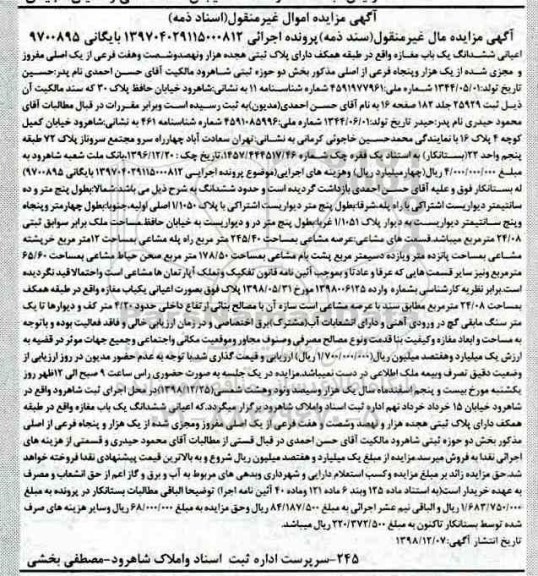 آگهی مزایده اموال غیرمنقول(اسناد ذمه)
آگهی مزایده مال غیرمنقول(سند ذمه)پرونده اجرائی ۱۳۹۷۰۴۰۲۹۱۱۵۰۰۰۸۱۲ بایگانی ۹۷۰۰۸۹۵
اعیانی ششدانگ یک باب مغازه واقع در طبقه همکف دارای پلاک ثبتی هجده هزار ونهصدوشصت وهفت فرعی از یک اصلی مفروز
و مجزی شده از یک هزار وپنجاه فرعی از اصلی مذکور بخش دو حوزه ثبتی شاهرود مالکیت آقای حسن احمدی نام پدر:حسین
تاریخ تولد:۱۳۴۴/۰۵/۰۱ شماره ملی:۴۵۹۱۹۷۷۹۶۱ شماره شناسنامه ۱۱ به نشانی:شاهرود خیابان حافظ پلاک ۳۰ که سند مالکیت آن
ذیل ثبت ۲۵۹۲۹ جلد ۱۸۲ صفحه ۱۶ به نام آقای حسن احمدی(مدیون)به ثبت رسیده است وبرابر مقررات در قبال مطالبات آقای
محمود حیدری نام پدر:حیدر تاریخ تولد:۱۳۴۴/۰۶/۰۱ شماره ملی:۴۵۹۱۰۸۵۹۹۶ شماره شناسنامه ۴۶۱ به نشانی:شاهرود خیابان کمیل
کوچه ۴ پلاک ۱۶ با نمایندگی محمدحسین خاجوئی کرمانی به نشانی:تهران سعادت آباد چهارراه سرو مجتمع سروناز پلاک ۷۲ طبقه
پنجم واحد ۲۲(بستانکار) به استناد یک فقره چک شماره ۱۴۵۷/۴۴۴۵۱۷/۴۶،تاریخ چک : ۱۳۹۶/۱۲/۲۰،بانک ملت شعبه شاهرود به
مبلغ ۴/۰۰۰/۰۰۰/۰۰۰ ریال(چهارمیلیارد ریال) وهزینه های اجرایی(موضوع پرونده اجرایی ۱۳۹۷۰۴۰۲۹۱۱۵۰۰۰۸۱۲ بایگانی ۹۷۰۰۸۹۵)
له بستانکار فوق و علیه آقای حسن احمدی بازداشت گردیده است و حدود ششدانگ به شرح ذیل می باشد:شمالا:بطول پنج متر و ده
سانتیمتر دیواریست اشتراکی با راه پله.شرقا:بطول پنج متر دیواریست اشتراکی با پلاک ۱/۱۰۵۰ اصلی اولیه.جنوبا:بطول چهارمتر وپنجاه
وپنج سانتیمتر دیواریست به دیوار پلاک ۱/۱۰۵۱.غربا:بطول پنج متر در و دیواریست به خیابان حافظ.مساحت ملک برابر سوابق ثبتی
۲۴/۰۸ مترمربع میباشد.قسمت های مشاعی:عرصه مشاعی بمساحت ۲۴۵/۴۰ متر مربع راه پله مشاعی بمساحت ۱۲متر مربع خرپشته
مشاعی بمساحت پانزده متر ویازده دسیمتر مربع پشت بام مشاعی بمساحت ۱۷۸/۵۰ متر مربع صحن حیاط مشاعی بمساحت ۶۵/۶۰
مترمربع ونیز سایر قسمت هایی که عرفا و عادتا و بموجب آئین نامه قانون تفکیک وتملک آپارتمان ها مشاعی است واحتمالا قید نگردیده
است.برابر نظریه کارشناسی بشماره وارده ۱۳۹۸۰۰۶۱۲۵ مورخ ۱۳۹۸/۰۵/۳۱ پلاک فوق بصورت اعیانی یکباب مغازه واقع در طبقه همکف
بمساحت ۲۴/۰۸ مترمربع مطابق سند با عرصه مشاعی است سازه آن با مصالح بنائی ارتفاع داخلی حدود ۴/۲۰ متر کف و دیوارها تا یک
متر سنگ مابقی گچ در ورودی آهنی و دارای انشعابات آب(مشترک)،برق اختصاصی و در زمان ارزیابی خالی و فاقد فعالیت بوده و باتوجه
به مساحت و ابعاد مغازه وکیفیت بنا قدمت ونوع مصالح مصرفی وصنوف مجاور وموقعیت مکانی واجتماعی وجمیع جهات موثر در قضیه به
ارزش یک میلیارد وهفتصد میلیون ریال(۱/۷۰۰/۰۰۰/۰۰۰ ریال) ارزیابی و قیمت گذاری شد.با توجه به عدم حضور مدیون در روز ارزیابی از
وضعیت دقیق تصرف وبیمه ملک اطلاعی در دست نمیباشد.مزایده در یک جلسه به صورت حضوری راس ساعت ۹ صبح الی ۱۲ظهر روز
یکشنبه مورخ بیست و پنجم اسفندماه سال یک هزار وسیصد ونود وهشت شمسی(۱۳۹۸/۱۲/۲۵)در محل اجرای ثبت شاهرود واقع در
شاهرود خیابان ۱۵ خرداد خرداد نهم اداره ثبت اسناد واملاک شاهرود برگزار میگردد.که اعیانی ششدانگ یک باب مغازه واقع در طبقه
همکف دارای پلاک ثبتی هجده هزار و نهصد وشصت و هفت فرعی از یک اصلی مفروز ومجزی شده از یک هزار و پنجاه فرعی از اصلی
مذکور بخش دو حوزه ثبتی شاهرود مالکیت آقای حسن احمدی در قبال قسمتی از مطالبات آقای محمود حیدری و قسمتی از هزینه های
اجرائی نقدا به فروش میرسد.مزایده از مبلغ یک میلیارد و هفتصد میلیون ریال شروع و به بالاترین قیمت پیشنهادی نقدا فروخته خواهد
شد.حق مزایده زائد بر مبلغ مزایده وکسب استعلام دارایی و شهرداری وبدهی های مربوط به آب و برق و گاز اعم از حق انشعاب و مصرف
به عهده خریدار است(به استناد ماده ۱۲۵ وبند ۶ ماده ۱۲۱ وماده ۴۰ آئین نامه اجرا) توضیحا الباقی مطالبات بستانکار در پرونده به مبلغ
۱/۶۸۳/۷۵۰/۰۰۰ ریال و الباقی نیم عشر اجرائی به مبلغ ۸۴/۱۸۷/۵۰۰ ریال وحق مزایده به مبلغ ۶۸/۰۰۰/۰۰۰ ریال وسایر هزینه های صرف
شده توسط بستانکار تاکنون به مبلغ ۲۲۰/۳۷۲/۵۰۰ ریال میباشد.
تاریخ انتشار آگهی:۱۳۹۸/۱۲/۰۷
۲۴۵-سرپرست اداره ثبت اسناد واملاک شاهرود-مصطفی بخشی